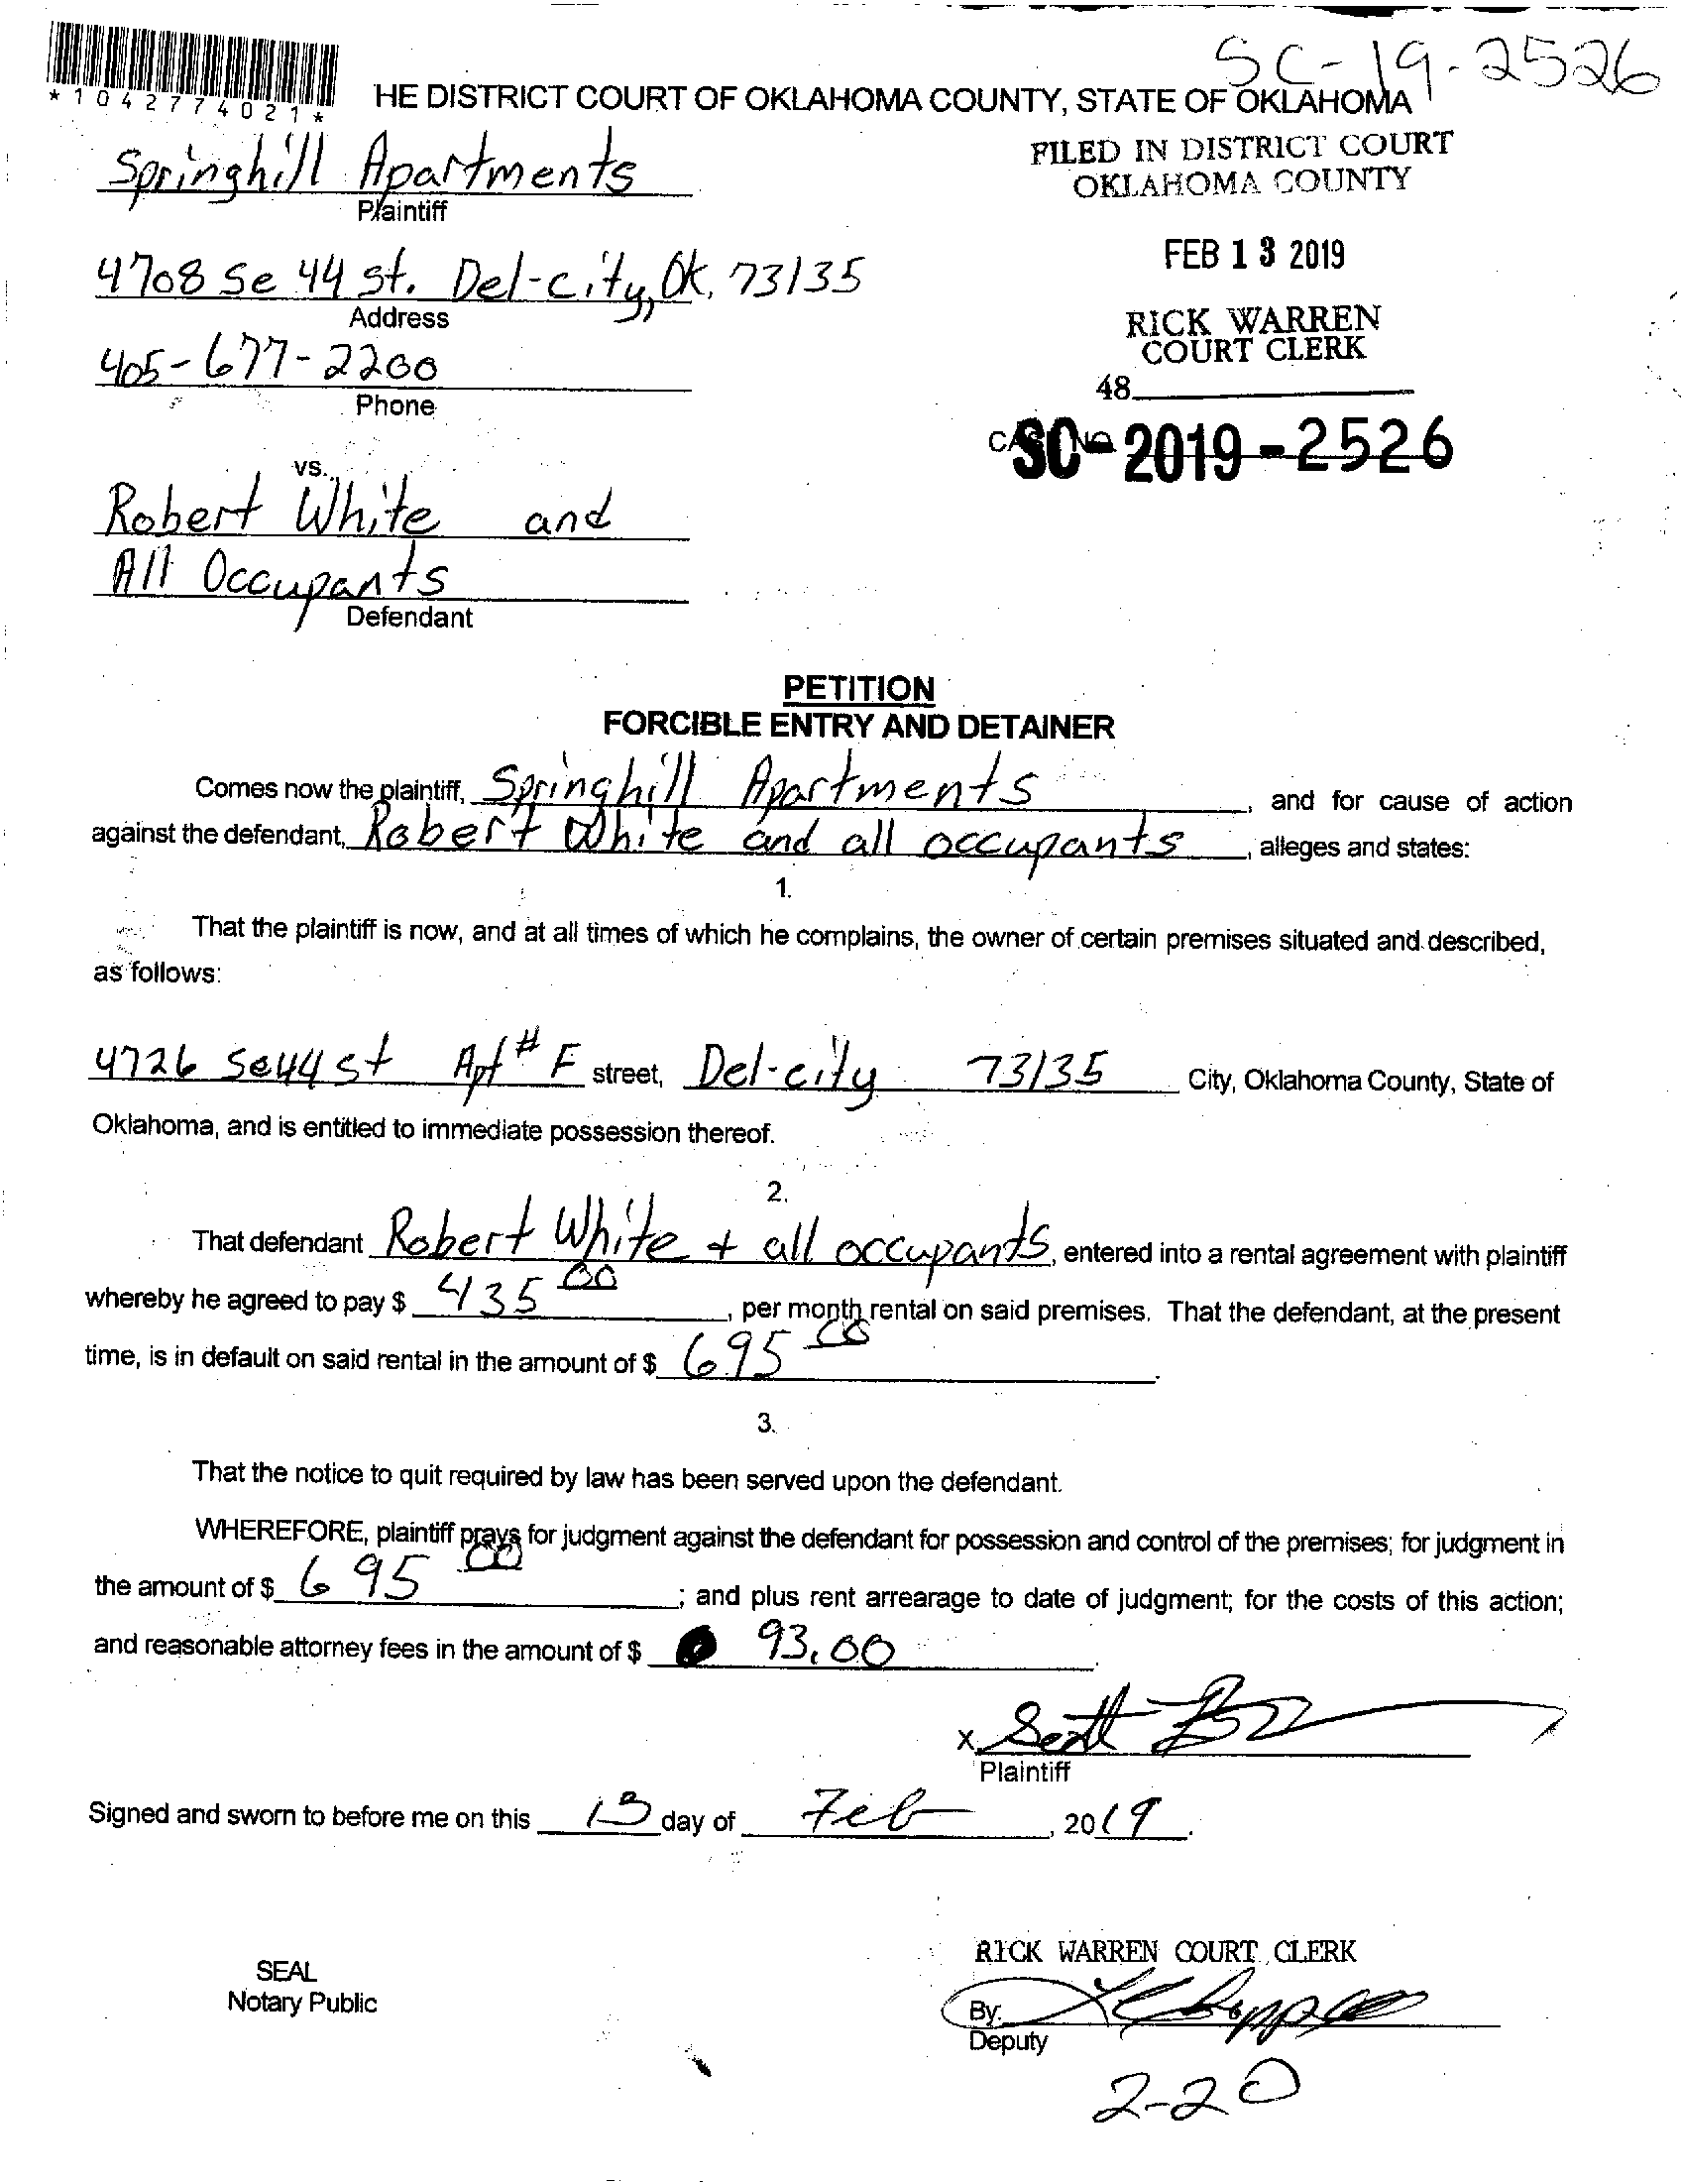 SC-19-2526
*1042774021*
HE DISTRICT COURT OF OKLAHOMA COUNTY, STATE OF OKLAHOMA
Springhill Apartments
Plaintiff
FILED IN DISTRICT COURT
OKLAHOMA COUNTY
4708 Se 44 st. Del-city, Ok, 73135
Address
FEB 13 2019
405-677-2200
Phone
RICK WARREN
COURT CLERK
48
SC-2019-2526
vs.
Robert White and
All Occupants
Defendant
PETITION
FORCIBLE ENTRY AND DETAINER
Comes now the plaintiff, Springhill Apartments, and for cause of action
against the defendant, Robert White and all occupants, alleges and states:
1.
That the plaintiff is now, and at all times of which he complains, the owner of certain premises situated and described,
as follows:
4726 Se 44 st Apt # F street, Del-city 73135 City, Oklahoma County, State of
Oklahoma, and is entitled to immediate possession thereof.
2.
That defendant Robert White + all occupants, entered into a rental agreement with plaintiff
whereby he agreed to pay $ 435 00, per month rental on said premises. That the defendant, at the present
time, is in default on said rental in the amount of $ 695 00.
3.
That the notice to quit required by law has been served upon the defendant.
WHEREFORE, plaintiff prays for judgment against the defendant for possession and control of the premises; for judgment in
the amount of $ 695 00; and plus rent arrearage to date of judgment; for the costs of this action;
and reasonable attorney fees in the amount of $ 93.00.
x Scott
Plaintiff
Signed and sworn to before me on this 13 day of Feb, 2019.
SEAL
Notary Public
RICK WARREN COURT CLERK
By:
Deputy
2-20